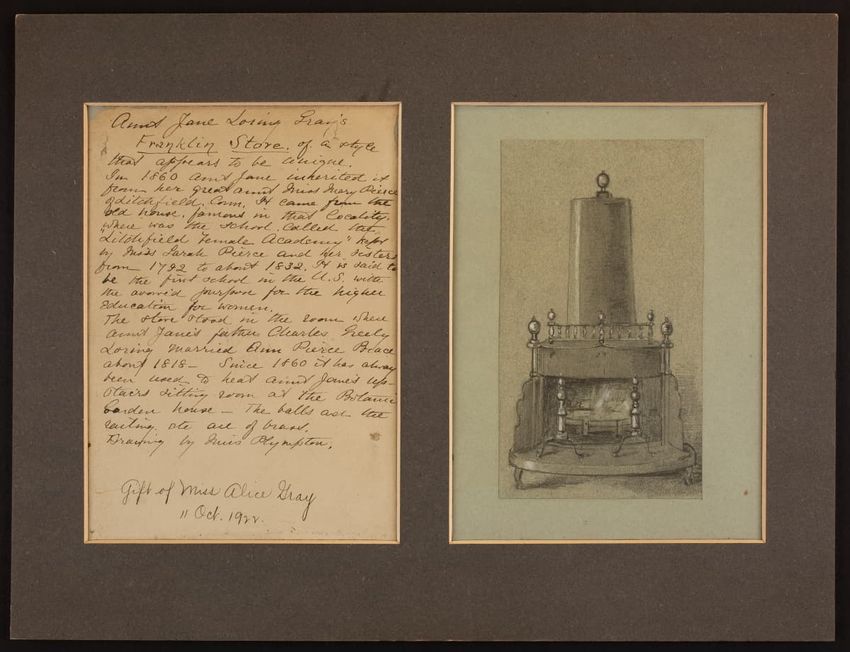 Aunt Jane Loring Gray's
Franklin Stove. of a style
that appears to be unique.
In 1860 Aunt Jane inherited it
from her great aunt Miss Mary Pierce
of Litchfield, Conn. It came from the
old house, famous in that locality,
where was the school, called the
"Litchfield Female Academy" kept
by Miss Sarah Pierce and her sisters
from 1792 to about 1832. It is said to
be the first school in the U.S. with
the avowed purpose for the higher
Education for women.
The stove stood in the room where
Aunt Jane's father Charles Greely
Loring married Ann Pierce Brace
about 1818 – Since 1860 it has always
been used to heat Aunt Jane's up-
stairs sitting room at the Botanic
Garden house – The balls and the
railing, etc are of brass.
Drawing by Miss Plympton.
Gift of Miss Alice Gray
11 Oct. 1922.